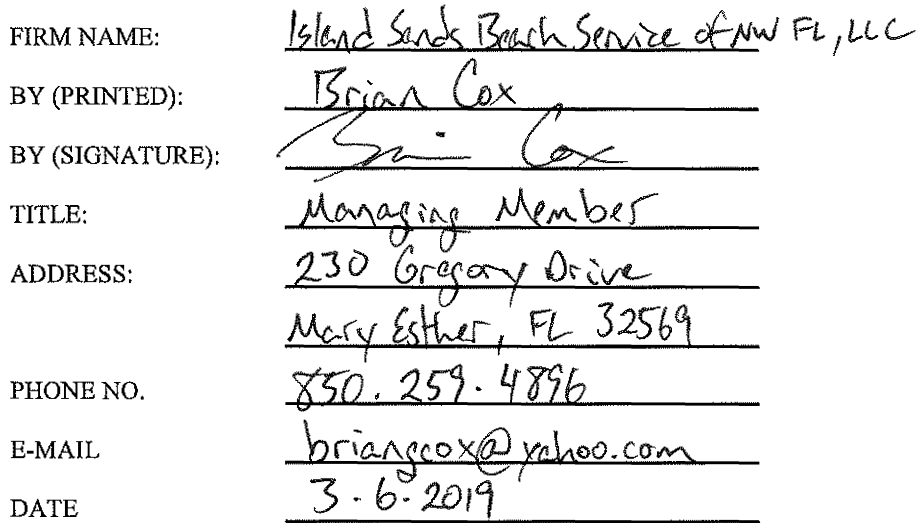 FIRM NAME: Island Sands Beach Service of NW FL, LLC
BY (PRINTED): Brian Cox
BY (SIGNATURE): Brian Cox
TITLE: Managing Member
ADDRESS: 230 Gregory Drive
Mary Esther, FL 32569
PHONE NO. 850.259.4896
E-MAIL briangcox@yahoo.com
DATE 3-6-2019